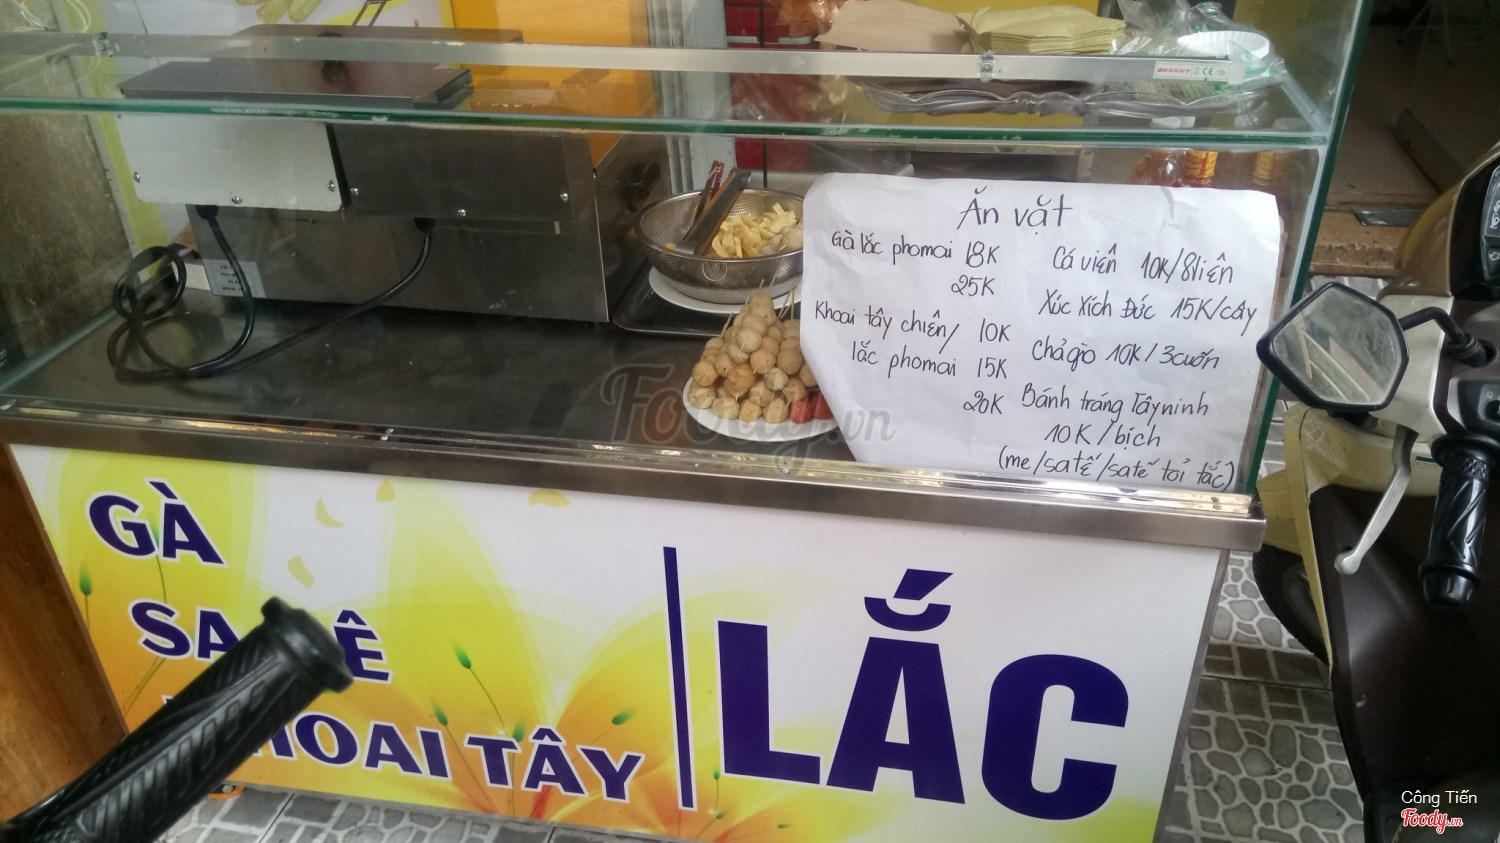 Ăn vặt
Gà lắc phomai 18K
25K
Khoai tây chiên/ 10K
lắc phomai 15K
20K
Cá viên 10K/8viên
Xúc Xích Đức 15K/cây
Chả giò 10K/3cuốn
Bánh tráng Tây ninh
10K/bịch
(me/sa tế/sa tế tỏi tắc)
GÀ
KHOAI TÂY
LẮC
Foody.vn
Công Tiến
Foody.vn